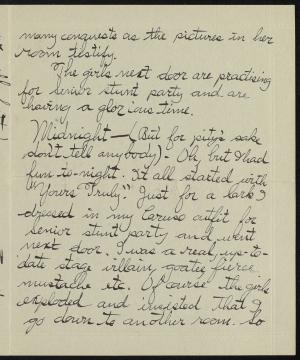 many conquests as the pictures in her
room testify.
The girls next door are practising
for senior stunt party and are
having a glorious time.
Midnight — (But for pity's sake
don't tell anybody) - Oh, but I had
fun to-night. It all started with
"Yours Truly". Just for a lark I
dressed in my Caruso outfit for
senior stunt party and went
next door. I was a real, up-to-
date stage villain, goatee, fierce
mustache etc. Of course the girls
exploded and insisted that I
go down to another room. So